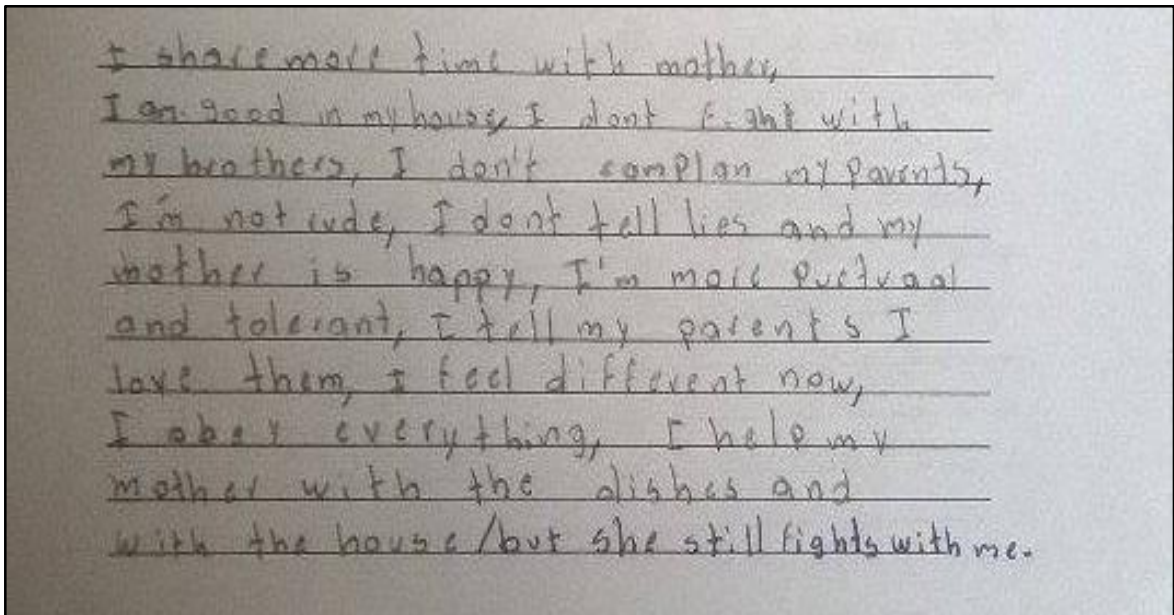 I share more time with mother,
I am good in my house, I dont fight with
my brothers, I don't complan my parents,
I'm not rude, I dont tell lies and my
mother is happy, I'm more Puctuaal
and tolerant, I tell my parents I
love them, I feel different now,
I obey everything, I help my
mother with the dishes and
with the house/but she still fights with me.